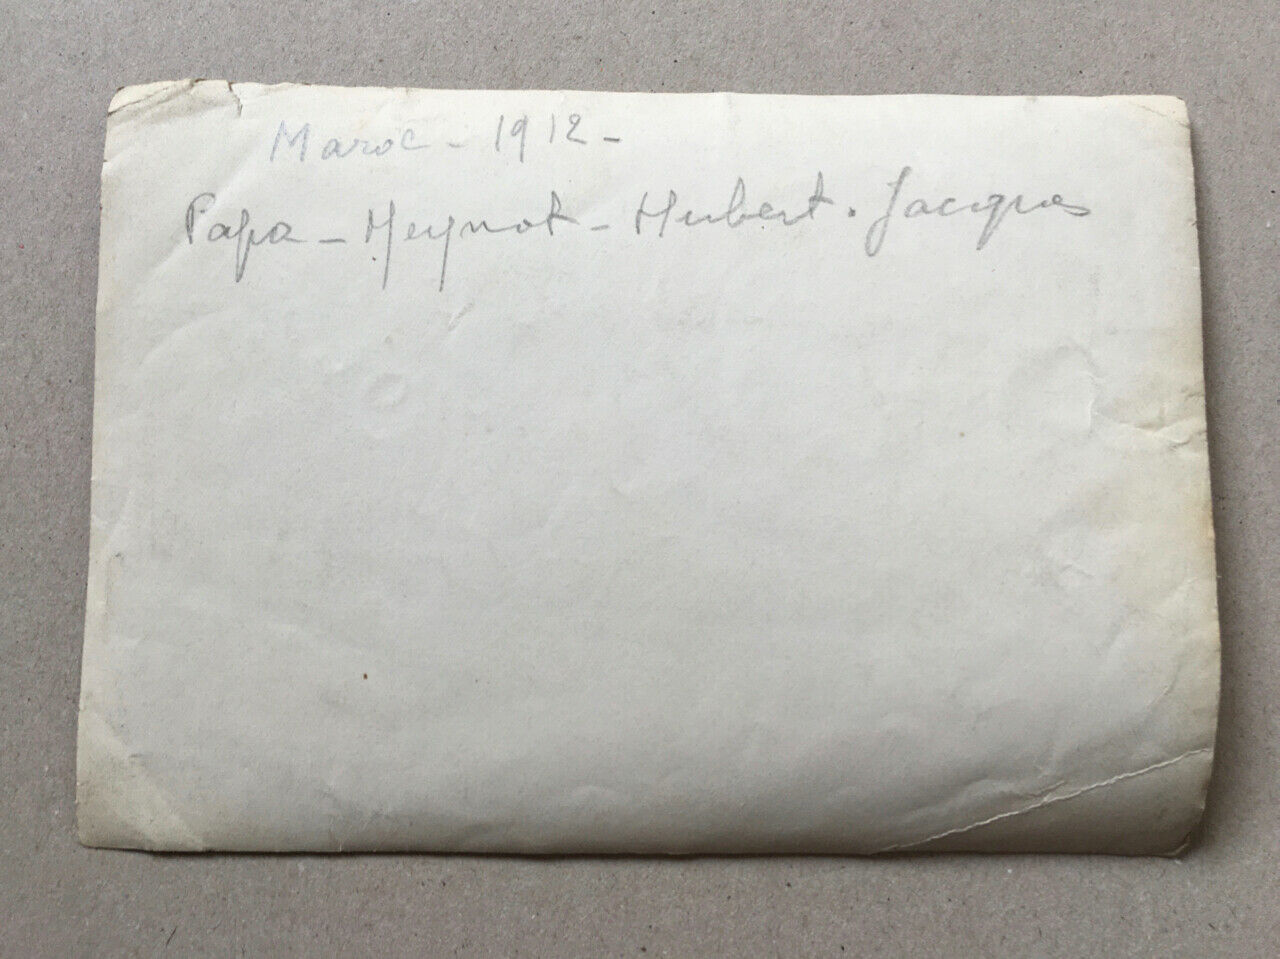 Maroc - 1912 -
Papa - Meynot - Hubert . Jacques